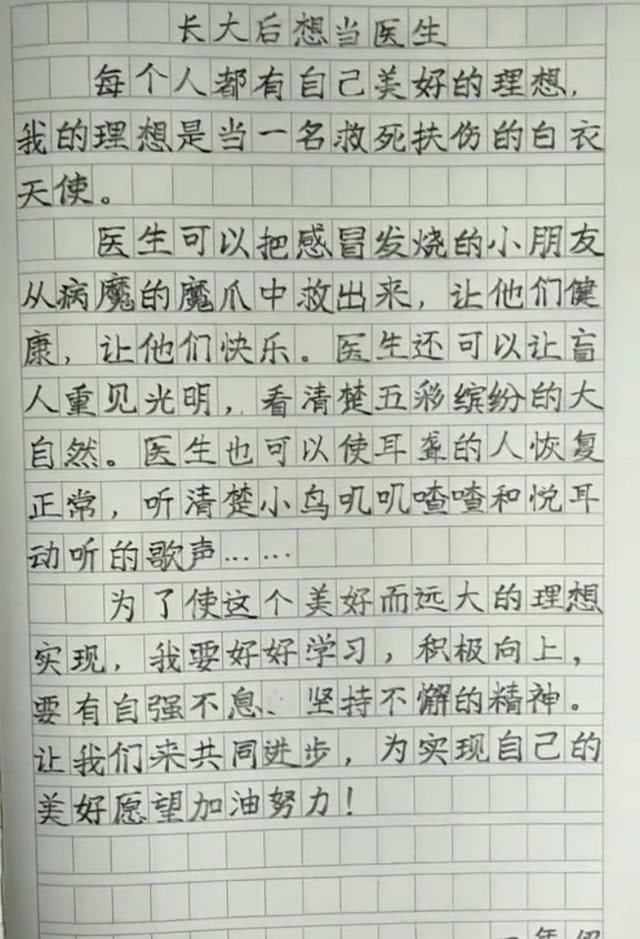 长大后想当医生
每个人都有自己美好的理想，
我的理想是当一名救死扶伤的白衣
天使。
医生可以把感冒发烧的小朋友
从病魔的魔爪中救出来，让他们健
康，让他们快乐。医生还可以让盲
人重见光明，看清楚五彩缤纷的大
自然。医生也可以使耳聋的人恢复
正常，听清楚小鸟叽叽喳喳和悦耳
动听的歌声……
为了使这个美好而远大的理想
实现，我要好好学习，积极向上，
要有自强不息、坚持不懈的精神。
让我们来共同进步，为实现自己的
美好愿望加油努力！
年级